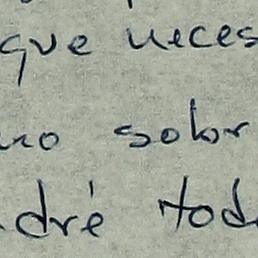 que neces
no solor
dré tod